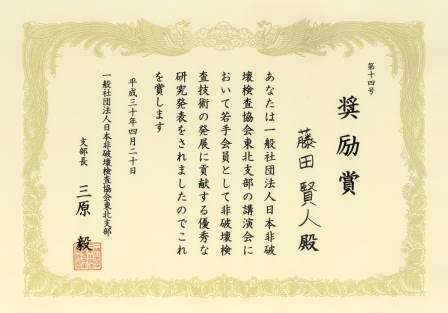 第十四号
奨励賞
藤田 賢人 殿
あなたは一般社団法人日本非破
壊検査協会東北支部の講演会に
おいて若手会員として非破壊検
査技術の発展に貢献する優秀な
研究発表をされましたのでこれ
を賞します
平成三十年四月二十日
一般社団法人日本非破壊検査協会東北支部
支部長 三原 毅